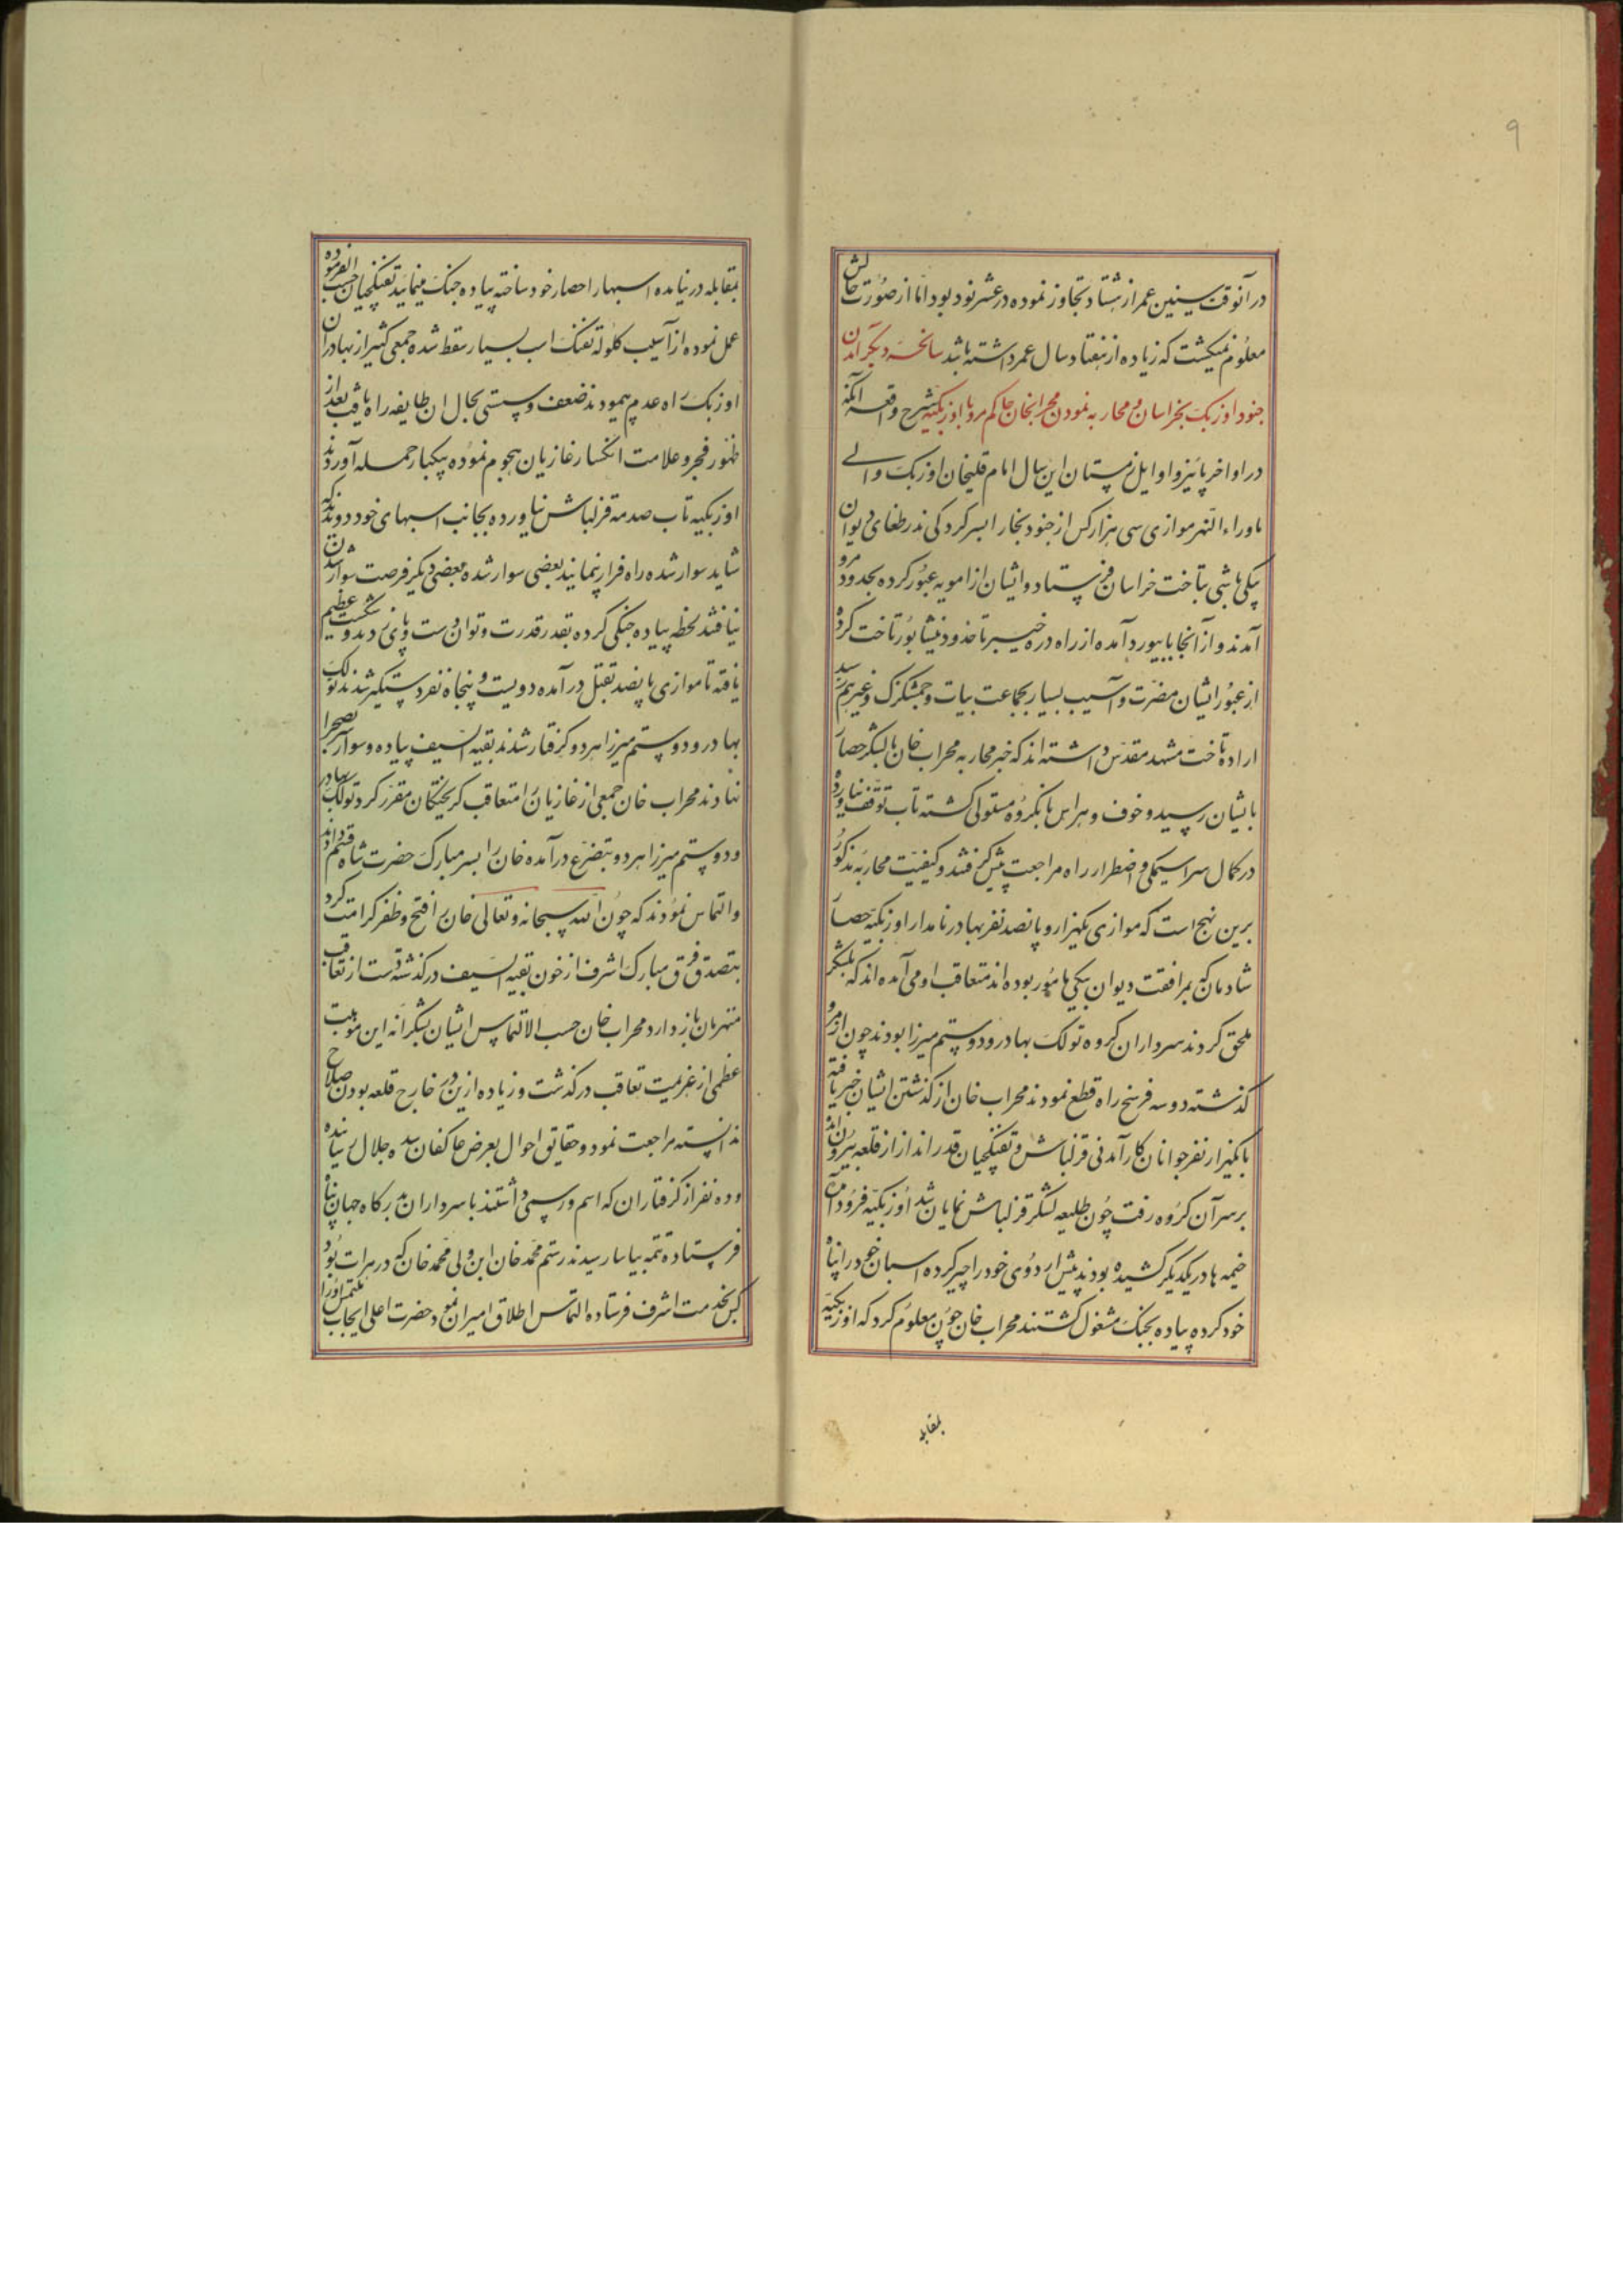 ۹
در آنوقت سنین عمر از هشتاد تجاوز نموده در عشر نود بود اما از صورت حالش
معلوم نمیکشت که زیاده از هفتاد سال عمر داشته باشد سانحه دیگر آمدن
جنود اوزبک بخراسان و محاربه نمودن محرابخان حاکم مرو با اوزبکیه شرح واقعه آنکه
در اواخر پائیز و اوایل زمستان این سال امام قلیخان اوزبک والی
ماوراء النهر موازی سی هزار کس از جنود بخارا بسر کردکی نذر طغای دیوان
بیکی باشی بتاخت خراسان فرستاد و ایشان از امویه عبور کرده بحدود مرو
آمدند و از آنجا بابیورد آمده از راه دره خیبر تا خذود نیشابور تاخت کرده
از عبور ایشان مضرت و آسیب بسیار بجماعت بیات و چمشکزک و غیرهم رسید
اراده تاخت مشهد مقدس داشته اند که خبر محاربه محراب خان با لشکر حصار
بایشان رسید و خوف و هراس بانکروه مستولی کشته تاب توقف نیاورده
در کمال سراسیمکی و اضطرار راه مراجعت پیش کرفتند و کیفیت محاربه مذکور
برین نهج است که موازی یکهزار و پانصد نفر بهادر نامدار اوزبکیه حصار
شادمان که بمرافقت دیوان بیکی مامور بوده اند متعاقب او می آمده اند که بلشکر
ملحق کردند سرداران کروه تولک بهادر و دوستم میرزا بودند چون از مرو
کذشته دو سه فرسخ راه قطع نمودند محراب خان از کذشتن ایشان خبر یافته
با یکهزار نفر جوانان کارآمدنی قزلباش و تفنکچیان قدر انداز از قلعه بیرون آمده
بر سر آن کروه رفت چون طلیعه لشکر قزلباش نمایان شد اوزبکیه فرود آمده
خیمه ها در یکدیکر کشیده بودند پیش اردوی خود را چپر کرده اسبان خود را پناه
خود کرده پیاده بجنک مشغول کشتند محراب خان چون معلوم کرد که اوزبکیه
بمقابله
بمقابله در نیامده اسبها را حصار خود ساخته پیاده جنک مینمایند تفنکچیان حسب الفرموده
عمل نموده از آسیب کلوله تفنک اسب بسیار سقط شده جمعی کثیر از بهادران
اوزبک راه عدم پیمودند ضعف و سستی بحال ان طایفه راه یافت بعد از
ظهور فجر و علامت انکسار غازیان هجوم نموده بیکبار حمله آوردند
اوزبکیه تاب صدمه قزلباش نیاورده بجانب اسبهای خود دویدند که
شاید سوار شده راه فرار پیمایند بعضی سوار شده بعضی دیکر فرصت سوار شدن
نیافتند لحظه پیاده جنکی کرده بقدر قدرت و توان دست و پائی زدند و شکست عظیم
یافته تا موازی پانصد بقتل در آمده دویست و پنجاه نفر دستکیر شدند تولک
بهادر و دوستم میرزا هر دو کرفتار شدند بقیه السیف پیاده و سوار بصحرا
نهادند محراب خان جمعی از غازیان را متعاقب کریختکان مقرر کرد تولک بهادر
و دوستم میرزا هر دو بتضرع در آمده خان را بسر مبارک حضرت شاه قسم دادند
و التماس نمودند که چون الله سبحانه و تعالی خان را فتح و ظفر کرامت کرد
بتصدق فرق مبارک اشرف از خون بقیه السیف در کذشته دست از تعاقب
منهزمان باز دارد محراب خان حسب الالتماس ایشان بشکرانه این موهبت
عظمی از عزیمت تعاقب در کذشت و زیاده ازین در خارج قلعه بودن صلاح
ندانسته مراجعت نمود و حقایق احوال بعرض عاکفان سده جلال رسانیده
و ده نفر از کرفتاران که اسم و رسمی داشتند با سرداران بدرکاه جهان پناه
فرستاد تتمه بیاسا رسیدند رستم محمد خان ابن ولی محمد خان که در هرات بود
کس بخدمت اشرف فرستاده التماس اطلاق امیران نمود حضرت اعلی ایجاب ملتمس او را